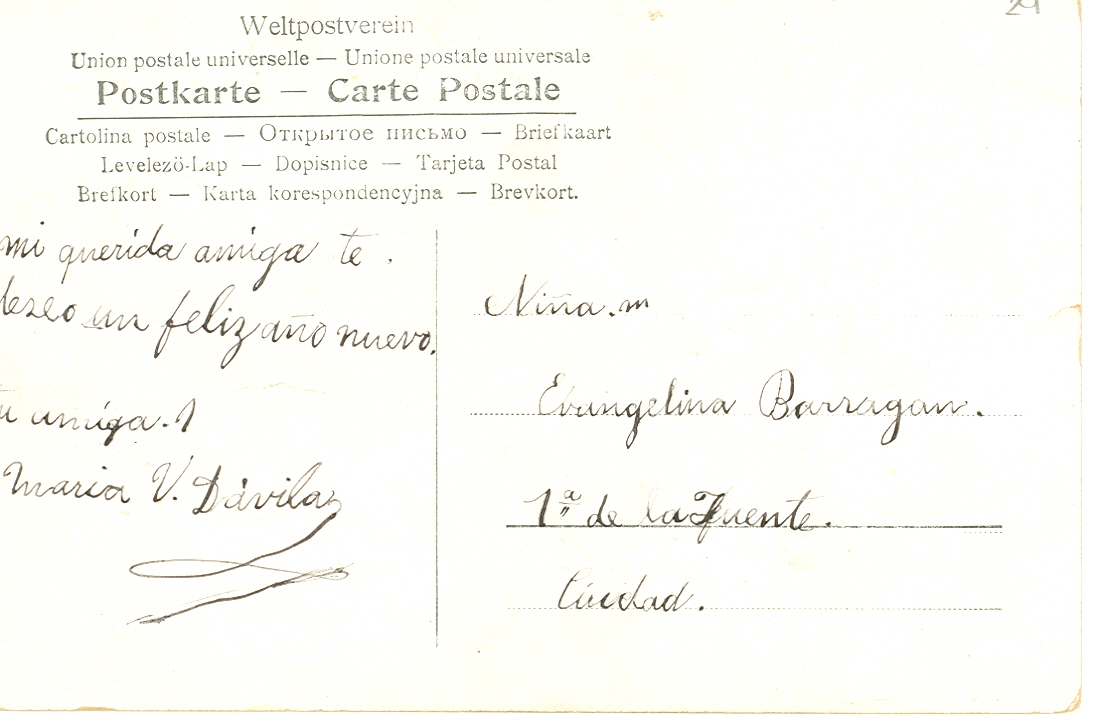 24
Weltpostverein
Union postale universelle — Unione postale universale
Postkarte — Carte Postale
Cartolina postale — Открытое письмо — Briefkaart
Levelezö-Lap — Dopisnice — Tarjeta Postal
Brefkort — Karta korespondencyjna — Brevkort.
mi querida amiga te.
deseo un feliz año nuevo.
tu amiga.
Maria V. Dávila
Niña.
Evangelina Barragan.
1ª de la Fuente.
Ciudad.